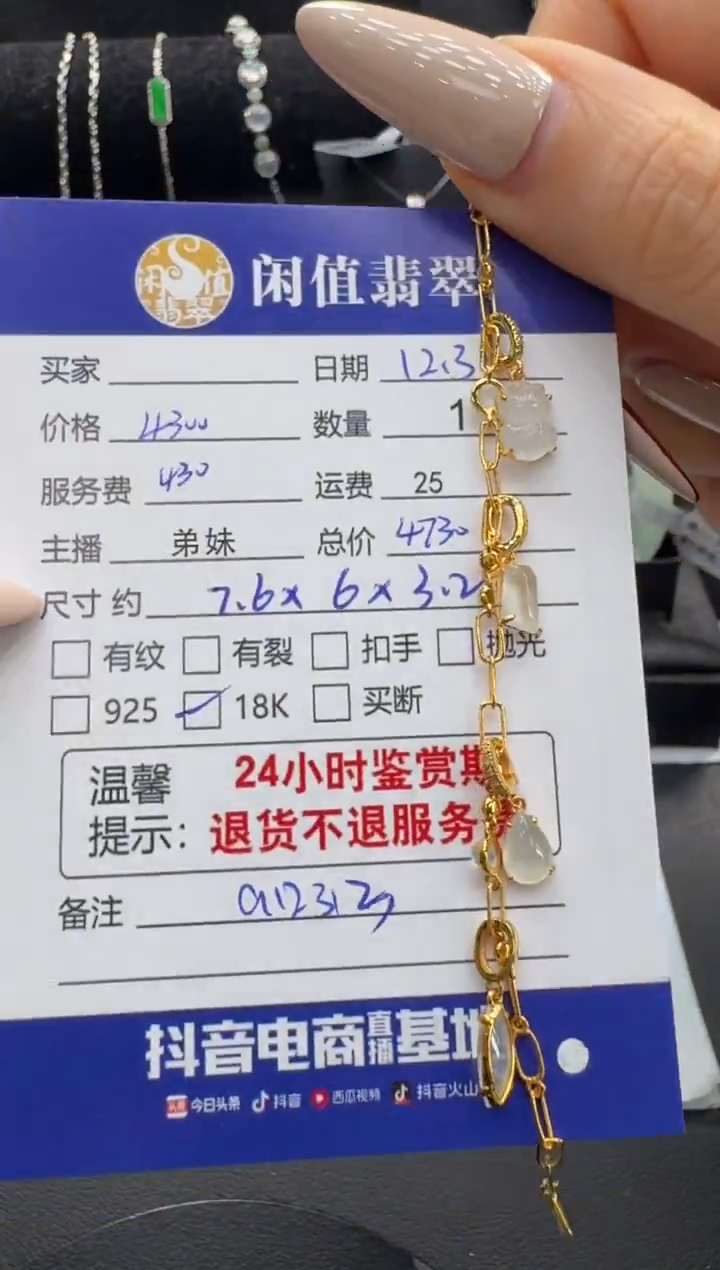 闲值翡翠
闲值翡翠
买家 日期 12.3
价格 4300 数量 1
服务费 430 运费 25
主播 弟妹 总价 4730
尺寸 约 7.6x 6 x 3.2
有纹 有裂 扣手 抛光
925 18K 买断
温馨提示: 24小时鉴赏期
退货不退服务费
备注
抖音电商直播基地
头条 今日头条 抖音 西瓜视频 抖音火山